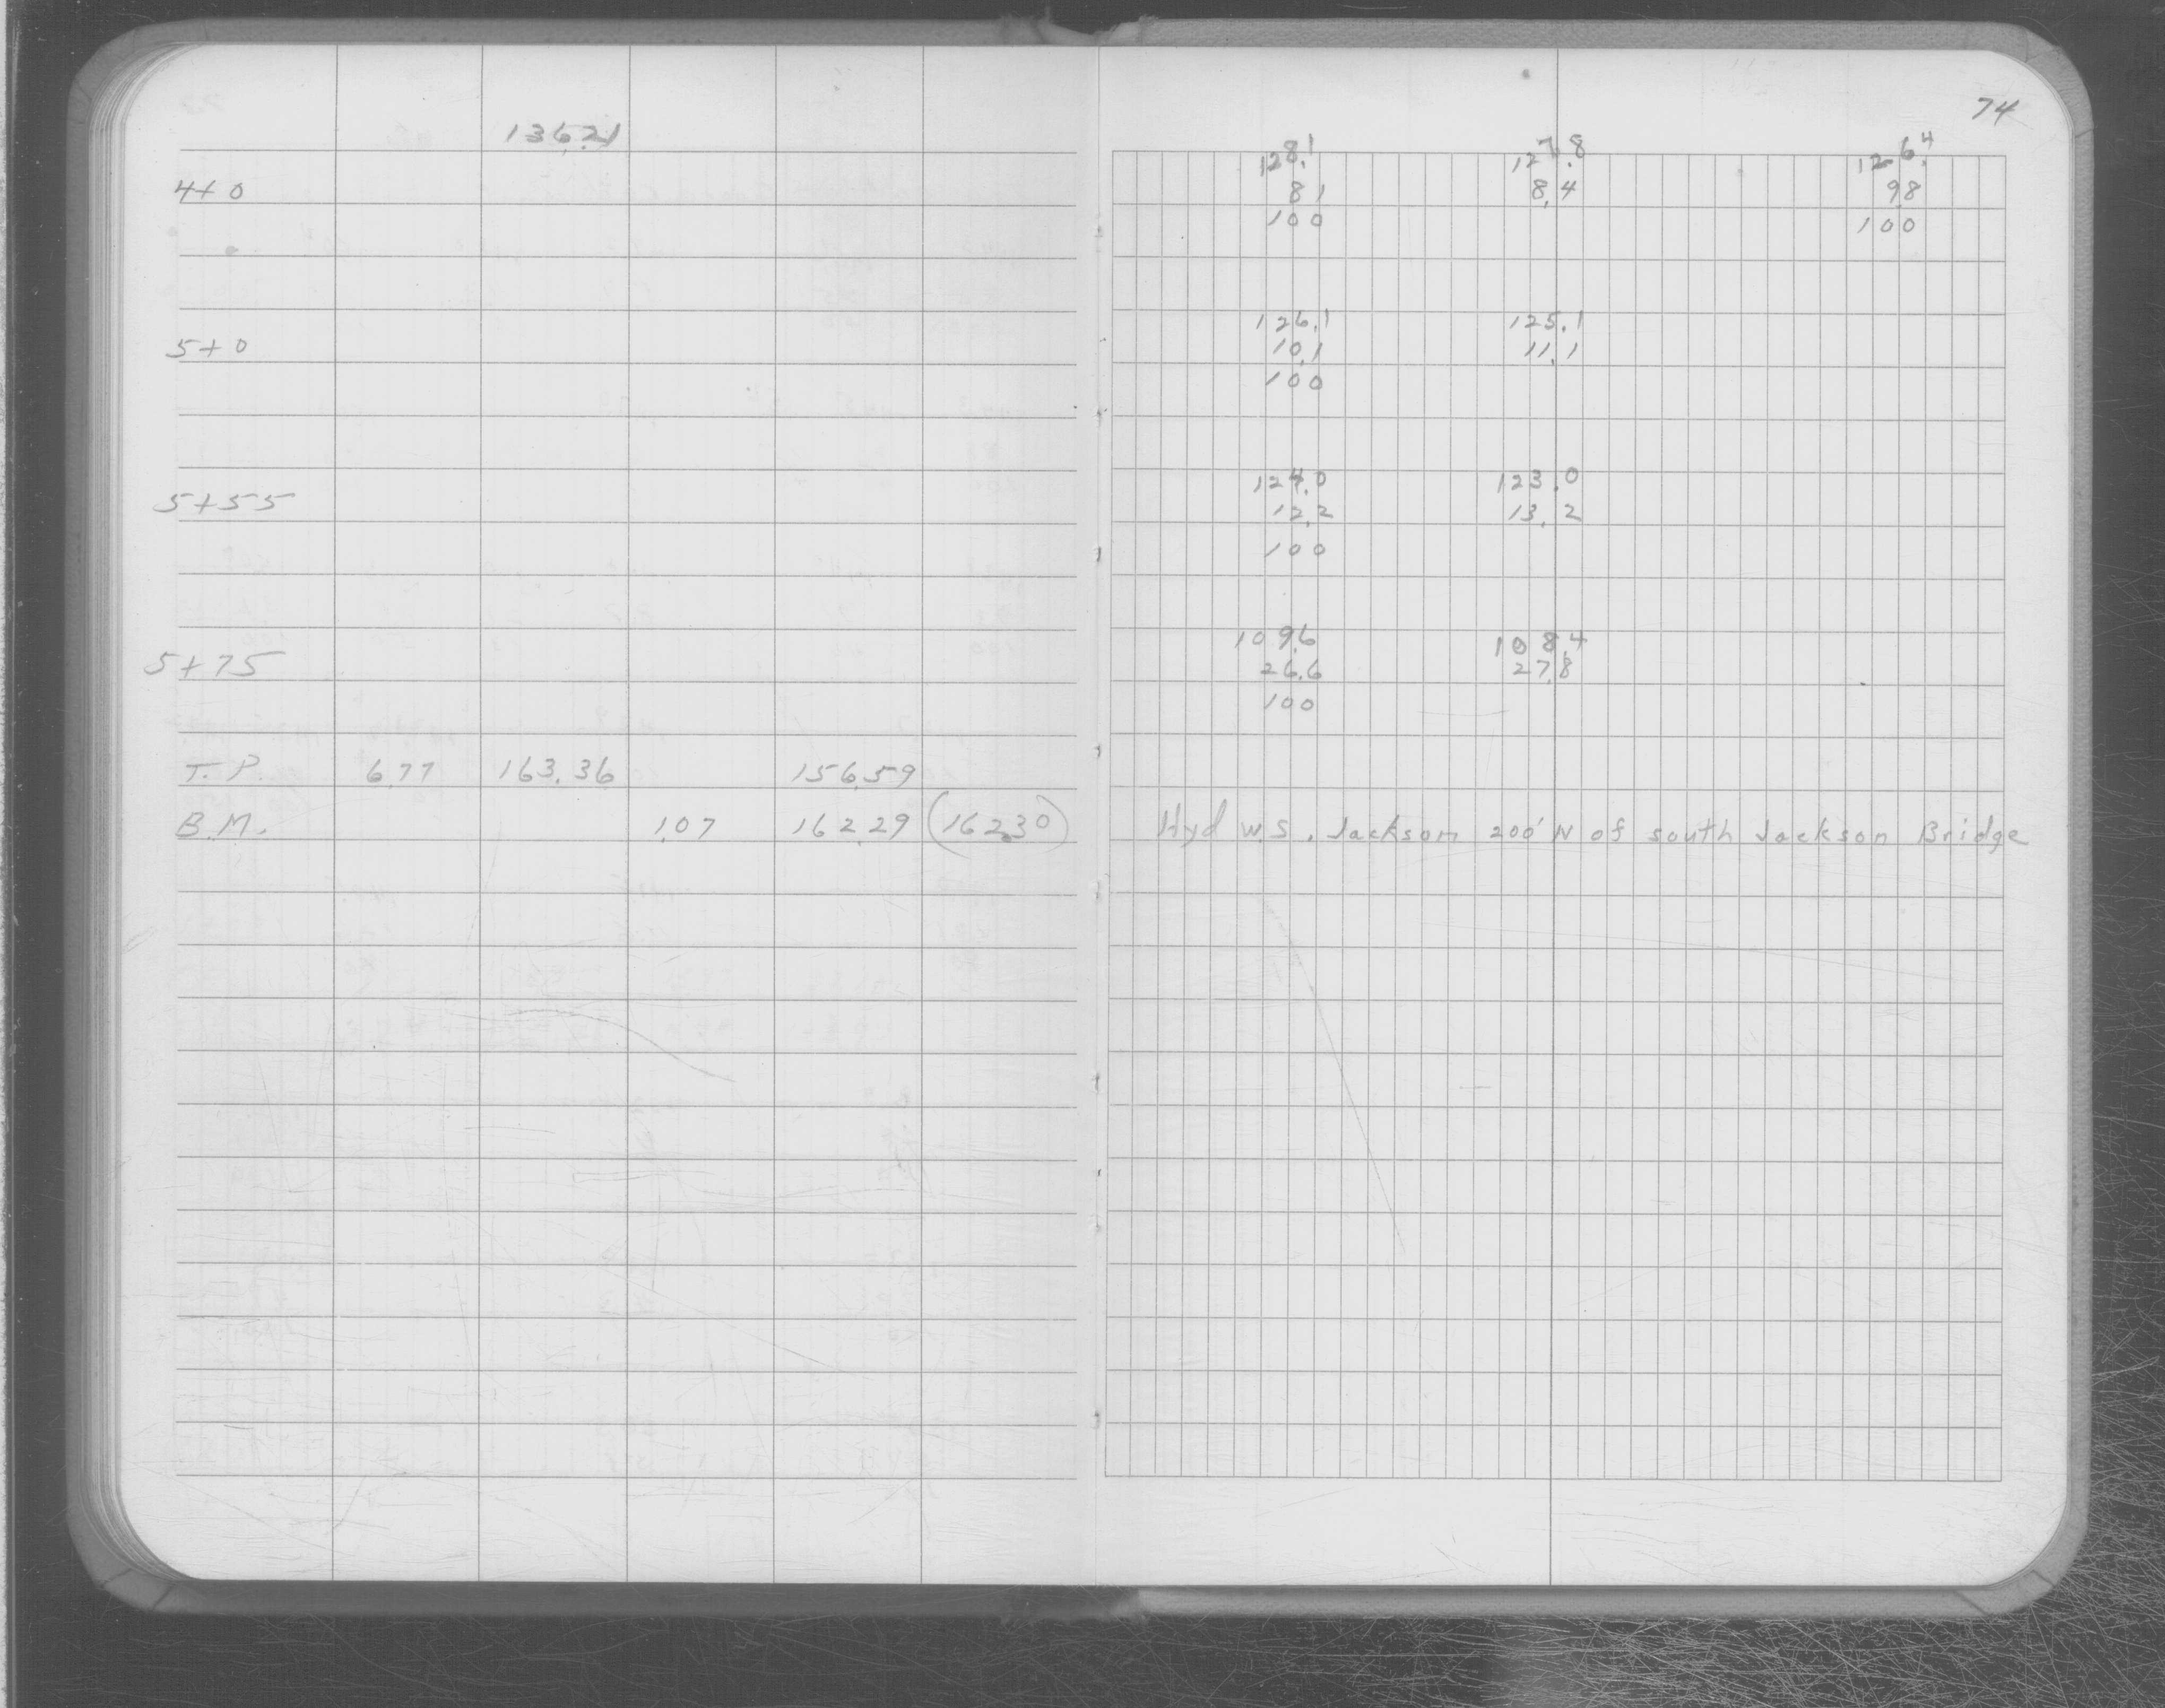 74
136.21
128.1 127.8 126.4
4+0 8.1 8.4 9.8
100 100
126.1 125.1
5+0 10.1 11.1
100
124.0 123.0
5+55 12.2 13.2
100
109.6 108.4
5+75 26.6 27.8
100
T.P. 6.77 163.36 156.59
B.M. 1.07 162.29 (162.30) Hyd W.S. Jackson 200' N of south Jackson Bridge